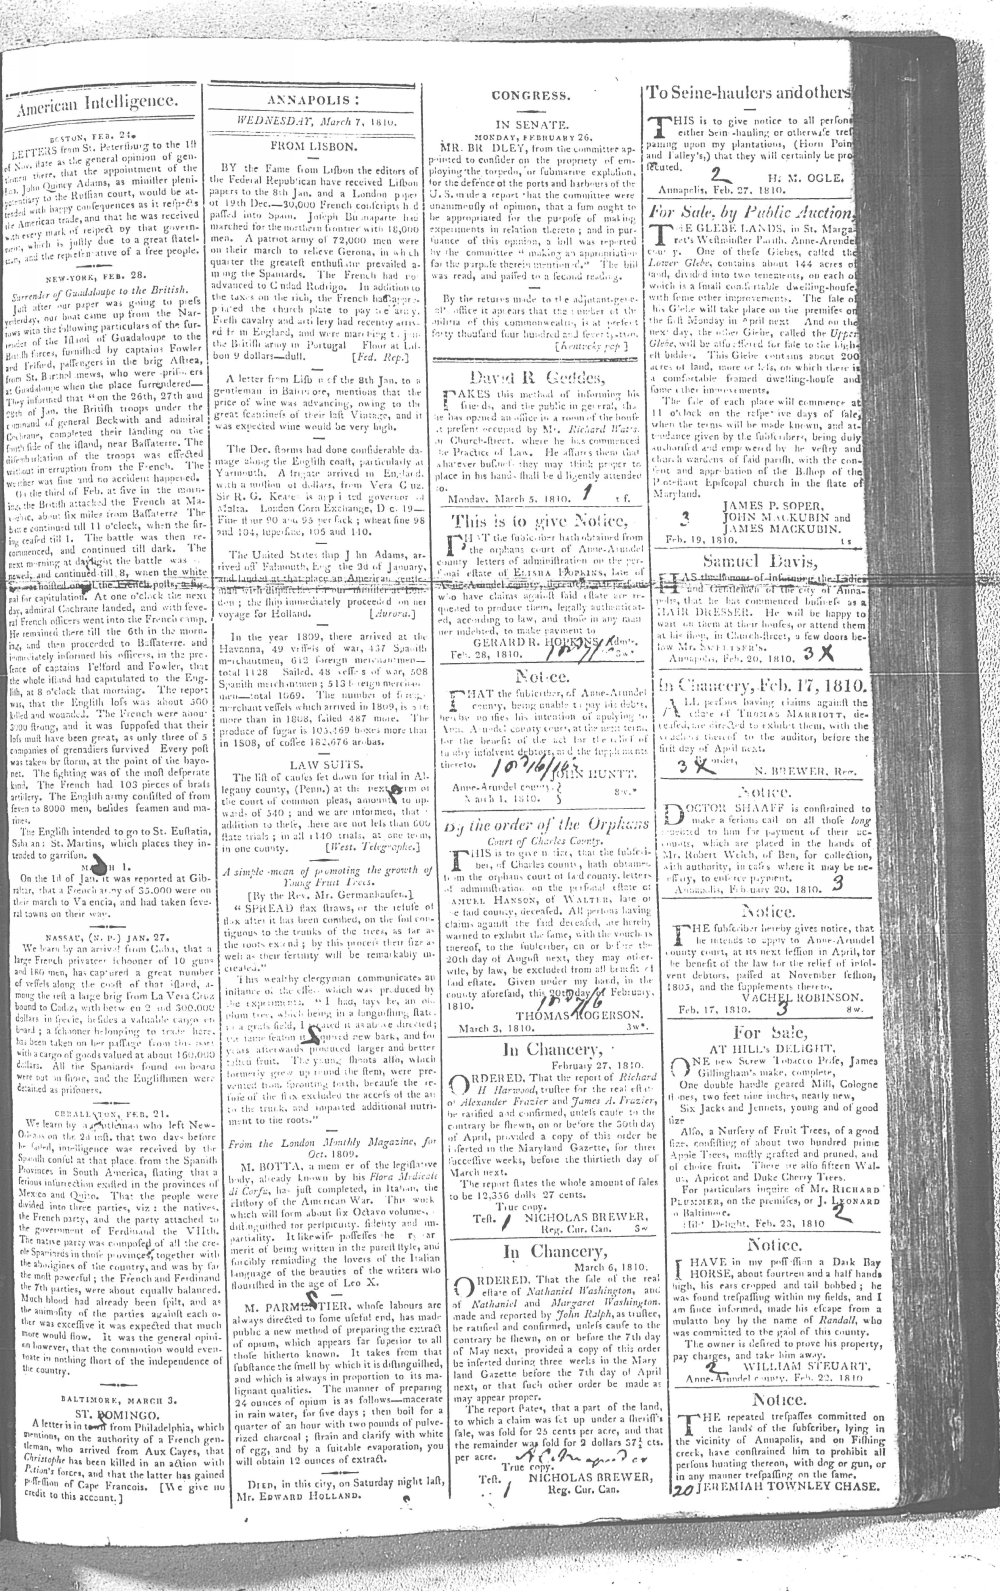 American Intelligence.
BOSTON, FEB. 24.
LETTERS from St. Petersburg to the 18
of Nov. state as the general opinion of gen-
there, that the appointment of the
John Quincy Adams, as minister pleni-
potentiary to the Russian court, would be at-
tended with happy consequences as it respects
the American trade, and that he was received
with every mark of respect by that govern-
ment, which is justly due to a great states-
man, and the representative of a free people.
NEW-YORK, FEB. 28.
Surrender of Guadaloupe to the British.
Just after our paper was going to press
yesterday, our boat came up from the Nar-
rows with the following particulars of the sur-
render of the Island of Guadaloupe to the
British forces, furnished by captains Fowler
and Telford, passengers in the brig Astrea,
from St. Bartholomews, who were prisoners
at Guadaloupe when the place surrendered—
They informed that "on the 26th, 27th and
28th of Jan. the British troops under the
command of general Beckwith and admiral
Cochrane, completed their landing on the
south side of the island, near Bassaterre. The
disembarkation of the troops was effected
without interruption from the French. The
weather was fine and no accident happened.
On the third of Feb. at five in the morn-
ing, the British attacked the French at Ma-
about six miles from Bassaterre The
battle continued till 11 o'clock, when the fir-
ing ceased till 1. The battle was then re-
commenced, and continued till dark. The
next morning at daylight the battle was re-
newed, and continued till 8, when the white
flag was hoisted on all the French posts, a sig-
nal for capitulation. At one o'clock the next
day, admiral Cochrane landed, and with seve-
ral French officers went into the French camp.
He remained there till the 6th in the morn-
ing, and then proceeded to Bassaterre, and
immediately informed his officers, in the pre-
sence of captains Telford and Fowler, that
the whole island had capitulated to the Eng-
lish, at 8 o'clock that morning. The report
was, that the English loss was about 300
killed and wounded. The French were about
strong, and it was supposed that their
loss must have been great, as only three of 5
companies of grenadiers survived Every post
was taken by storm, at the point of the bayo-
net. The fighting was of the most desperate
kind. The French had 103 pieces of brass
artillery. The English army consisted of from
seven to 8000 men, besides seamen and ma-
rines.
The English intended to go to St. Eustatia,
Saba an: St. Martins, which places they in-
tended to garrison.
MARCH 1.
On the 1st of Jan. it was reported at Gib-
raltar, that a French army of 35,000 were on
their march to Valencia, and had taken seve-
ral towns on their way.
NASSAU, (N. P.) JAN. 27.
We learn by an arrival from Cuba, that a
large French privateer schooner of 10 guns
and 180 men, has captured a great number
of vessels along the coast of that island, a-
mong the rest a large brig from La Vera Cruz
bound to Cadiz, with between 2 and 300,000
dollars in specie, besides a valuable cargo on
board; a schooner belonging to trade here,
has been taken on her passage from
with a cargo of goods valued at about 160,000
dollars. All the Spaniards found on board
were put on shore, and the Englishmen were
detained as prisoners.
CHARLESTON, FEB. 21.
We learn by a gentleman who left New-
Orleans on the 2d inst. that two days before
he sailed, intelligence was received by the
Spanish consul at that place, from the Spanish
Provinces in South America, stating that a
serious insurrection existed in the provinces of
Mexico and Quito. That the people were
divided into three parties, viz: the natives,
the French party, and the party attached to
the government of Ferdinand the VIIth.
The native party was composed of all the cre-
ole Spaniards in those provinces, together with
the aborigines of the country, and was by far
the most powerful; the French and Ferdinand
the 7th parties, were about equally balanced.
Much blood had already been spilt, and as
the animosity of the parties against each o-
ther was excessive it was expected that much
more would flow. It was the general opini-
on however, that the commotion would even-
tuate in nothing short of the independence of
the country.
BALTIMORE, MARCH 3.
ST. DOMINGO.
A letter is in town from Philadelphia, which
mentions, on the authority of a French gen-
tleman, who arrived from Aux Cayes, that
Christophe has been killed in an action with
Petion's forces, and that the latter has gained
possession of Cape Francois. [We give no
credit to this account.]
ANNAPOLIS:
WEDNESDAY, March 7, 1810.
FROM LISBON.
BY the Fame from Lisbon the editors of
the Federal Republican have received Lisbon
papers to the 8th Jan. and a London paper
of 19th Dec.—30,000 French conscripts had
passed into Spain. Joseph Buonaparte had
marched for the northern frontier with 18,000
men. A patriot army of 72,000 men were
on their march to relieve Gerona, in which
quarter the greatest enthusiasm prevailed a-
mong the Spaniards. The French had re-
advanced to Ciudad Rodrigo. In addition to
the taxes on the rich, the French had appro-
priated the church plate to pay the army.
Fresh cavalry and artillery had recently arriv-
ed from England, and were marching to join
the British army in Portugal Flour at Lis-
bon 9 dollars—dull. [Fed. Rep.]
A letter from Lisbon of the 8th Jan. to a
gentleman in Baltimore, mentions that the
price of wine was advancing, owing to the
great scantiness of their last Vintage, and it
was expected wine would be very high.
The Dec. storms had done considerable da-
mage along the English coast, particularly at
Yarmouth. A frigate arrived in England,
with a million of dollars, from Vera Cruz.
Sir R. G. Keates is appointed governor of
Malta. London Corn Exchange, Dec. 19—
Fine flour 90 and 95 per sack; wheat fine 98
and 104, superfine, 105 and 110.
The United States ship John Adams, ar-
rived off Falmouth, Eng. the 3d of January,
and landed at that place an American gentle-
man with dispatches for our minister at Lon-
don; the ship immediately proceeded on her
voyage for Holland. [Aurora.]
In the year 1809, there arrived at the
Havanna, 49 vessels of war, 437 Spanish
merchantmen, 642 foreign merchantmen—
total 1128 Sailed, 48 vessels of war, 508
Spanish merchantmen; 513 foreign merchant-
men—total 1069. The number of foreign
merchant vessels which arrived in 1809, is
more than in 1808, sailed 487 more. The
produce of sugar is 105,169 boxes more than
in 1808, of coffee 182,676 arobas.
LAW SUITS.
The list of causes set down for trial in Al-
legany county, (Penn.) at the next term of
the court of common pleas, amounts to up-
wards of 540; and we are informed, that
addition to these, here are not less than 600
state trials; in all 1140 trials, at one term,
in one county. [West. Telegraphe.]
A simple mean of promoting the growth of
Young Fruit Trees.
[By the Rev. Mr. Germanhausen.]
" SPREAD flax straws, or the refuse of
flax after it has been combed, on the soil con-
tiguous to the trunks of the trees, as far as
the roots extend; by this process their size as
well as their fertility will be remarkably in-
creased."
This wealthy clergyman communicates an
instance of the effect which was produced by
the experiments. " I had, says he, an old
plum tree, which being in a languishing state,
in a grass field, I treated it as above directed;
the same season it acquired new bark, and for
years afterwards produced larger and better
tasted fruit. The young shoots also, which
formerly grew up round the stem, were pre-
vented from sprouting forth, because the re-
fuse of the flax excluded the access of the air
to the trunk, and imparted additional nutri-
ment to the roots."
From the London Monthly Magazine, for
Oct. 1809.
M. BOTTA, a member of the legislative
body, already known by his Flora Medicale
di Corfu, has just completed, in Italian, the
History of the American War. The work
which will form about six Octavo volumes,
distinguished for perspicuity, fidelity and im-
partiality. It likewise possesses the
merit of being written in the purest style, and
forcibly reminding the lovers of the Italian
language of the beauties of the writers who
flourished in the age of Leo X.
M. PARMENTIER, whose labours are
always directed to some useful end, has made
public a new method of preparing the extract
of opium, which appears far superior to all
those hitherto known. It takes from that
substance the smell by which it is distinguished,
and which is always in proportion to its ma-
lignant qualities. The manner of preparing
24 ounces of opium is as follows—macerate
in rain water, for five days; then boil for a
quarter of an hour with two pounds of pulve-
rized charcoal; strain and clarify with white
of egg, and by a suitable evaporation, you
will obtain 12 ounces of extract.
DIED, in this city, on Saturday night last,
Mr. EDWARD HOLLAND.
CONGRESS.
IN SENATE.
MONDAY, FEBRUARY 26.
MR. BRADLEY, from the committee ap-
pointed to consider on the propriety of em-
ploying the torpedo, or submarine explosion,
for the defence of the ports and harbours of the
U. S. made a report that the committee were
unanimously of opinion, that a sum ought to
be appropriated for the purpose of making
experiments in relation thereto; and in pur-
suance of this opinion, a bill was reported
by the committee "making an appropriation
for the purpose therein mentioned." The bill
was read, and passed to a second reading.
By the returns made to the adjutant-gene-
ral's office it appears that the number of the
militia of this commonwealth, is at present
forty thousand four hundred and seventy-two.
[Kentucky pap.]
David R Geddes,
TAKES this method of informing his
friends, and the public in general, that
he has opened an office in a room of the house
at present occupied by Mr. Richard Watts,
in Church-street, where he has commenced
the Practice of Law. He assures them that
whatever business they may think proper to
place in his hands shall be diligently attended
to.
Monday, March 5, 1810. 1 t f.
This is to give Notice,
THAT the subscriber hath obtained from
the orphans court of Anne-Arundel
county letters of administration on the per-
sonal estate of ELISHA HOPKINS, late of
Anne-Arundel county, deceased. All persons
who have claims against said estate are re-
quested to produce them, legally authenticat-
ed, according to law, and those in any man-
ner indebted, to make payment to
GERARD R. HOPKINS, Adm'r.
Feb. 28, 1810. 3w*
Notice.
THAT the subscriber, of Anne-Arundel
county, being unable to pay his debts,
hereby notifies his intention of applying to
Ann Arundel county court, at the next term,
for the benefit of the act for the relief of
sundry insolvent debtors, and the supplements
thereto.
JOHN HUNTT.
Anne-Arundel county,
March 1, 1810. 8w.*
By the order of the Orphans
Court of Charles County.
THIS is to give notice, that the subscri-
ber, of Charles county, hath obtained
from the orphans court of said county, letters
of administration on the personal estate of
SAMUEL HANSON, of WALTER, late of
the said county, deceased. All persons having
claims against the said deceased, are hereby
warned to exhibit the same, with the vouchers
thereof, to the subscriber, on or before the
20th day of August next, they may other-
wise, by law, be excluded from all benefit of
said estate. Given under my hand, in the
county aforesaid, this 20th day of February,
1810.
THOMAS ROGERSON.
March 3, 1810. 3w*.
In Chancery,
February 27, 1810.
ORDERED, That the report of Richard
H Harwood, trustee for the real estate
of Alexander Frazier and James A. Frazier,
be ratified and confirmed, unless cause to the
contrary be shewn, on or before the 30th day
of April, provided a copy of this order be
inserted in the Maryland Gazette, for three
successive weeks, before the thirtieth day of
March next.
The report states the whole amount of sales
to be 12,356 dolls 27 cents.
True copy.
Test. 1 NICHOLAS BREWER,
Reg. Cur. Can. 3w
In Chancery,
March 6, 1810.
ORDERED, That the sale of the real
estate of Nathaniel Washington, and
of Nathaniel and Margaret Washington,
made and reported by John Ralph, as trustee,
be ratified and confirmed, unless cause to the
contrary be shewn, on or before the 7th day
of May next, provided a copy of this order
be inserted during three weeks in the Mary
land Gazette before the 7th day of April
next, or that such other order be made as
may appear proper.
The report states, that a part of the land,
to which a claim was set up under a sheriff's
sale, was sold for 25 cents per acre, and that
the remainder was sold for 2 dollars 57½ cts.
per acre.
True copy.
Test. NICHOLAS BREWER,
1 Reg. Cur. Can.
To Seine-haulers and others
THIS is to give notice to all persons
either Sein-hauling or otherwise tres
passing upon my plantations, (Horn Poin
and Talley's,) that they will certainly be pro
secuted.
2 H. M. OGLE.
Annapolis, Feb. 27, 1810.
For Sale, by Public Auction,
THE GLEBE LANDS, in St. Marga
ret's Westminster Parish, Anne-Arundel
county. One of these Glebes, called the
Lower Glebe, contains about 144 acres of
land, divided into two tenements, on each of
which is a small comfortable dwelling-house,
with some other improvements. The sale of
this Glebe will take place on the premises on
the first Monday in April next And on the
next day, the other Glebe, called the Upper
Glebe, will be also offered for sale to the high-
est bidder. This Glebe contains about 200
acres of land, more or less, on which there is
a comfortable framed dwelling-house and
some other improvements.
The sale of each place will commence at
11 o'clock on the respective days of sale,
when the terms will be made known, and at-
tendance given by the subscribers, being duly
authorised and empowered by the vestry and
church wardens of said parish, with the con-
sent and approbation of the Bishop of the
Protestant Episcopal church in the state of
Maryland.
JAMES P. SOPER,
3 JOHN MACKUBIN and
JAMES MACKUBIN.
Feb. 19, 1810. ts
Samuel Davis,
HAS the honour of informing the Ladies
and Gentlemen of the city of Anna-
polis, that he has commenced business as a
HAIR DRESSER. He will be happy to
wait on them at their houses, or attend them
at his shop, in Church-street, a few doors be-
low Mr. SWEITSER's.
Annapolis, Feb. 20, 1810. 3 X
In Chancery, Feb. 17, 1810.
ALL persons having claims against the
estate of THOMAS MARRIOTT, de-
ceased, are directed to exhibit them, with the
vouchers thereof to the auditor, before the
first day of April next.
3 X By order,
N. BREWER, Reg.
Notice.
DOCTOR SHAAFF is constrained to
make a serious call on all those long
indebted to him for payment of their ac-
counts, which are placed in the hands of
Mr. Robert Welch, of Ben, for collection,
with authority, in cases where it may be ne-
cessary, to enforce payment.
Annapolis, February 20, 1810. 3
Notice.
THE subscriber hereby gives notice, that
he intends to apply to Anne-Arundel
county court, at its next session in April, for
the benefit of the law for the relief of insol-
vent debtors, passed at November session,
1805, and the supplements thereto.
VACHEL ROBINSON.
Feb. 17, 1810. 3 8w.
For Sale,
AT HILL's DELIGHT.
ONE new Screw Tobacco Prise, James
Gillingham's make, complete,
One double handle geared Mill, Cologne
stones, two feet nine inches, nearly new,
Six Jacks and Jennets, young and of good
size
Also, a Nursery of Fruit Trees, of a good
size, consisting of about two hundred prime
Apple Trees, mostly grafted and pruned, and
of choice fruit. There are also fifteen Wal-
nut, Apricot and Duke Cherry Trees.
For particulars inquire of Mr. RICHARD
PLUMMER, on the premises, or J. LEONARD
Baltimore.
Hill's Delight, Feb. 23, 1810 2
Notice.
I HAVE in my possession a Dark Bay
HORSE, about fourteen and a half hands
high, his ears cropped and tail bobbed; he
was found trespassing within my fields, and I
am since informed, made his escape from a
mulatto boy by the name of Randall, who
was committed to the gaol of this county.
The owner is desired to prove his property,
pay charges, and take him away.
2 WILLIAM STEUART.
Anne-Arundel county, Feb. 22, 1810
Notice.
THE repeated trespasses committed on
the lands of the subscriber, lying in
the vicinity of Annapolis, and on Fishing
creek, have constrained him to prohibit all
persons hunting thereon, with dog or gun, or
in any manner trespassing on the same.
20 JEREMIAH TOWNLEY CHASE.